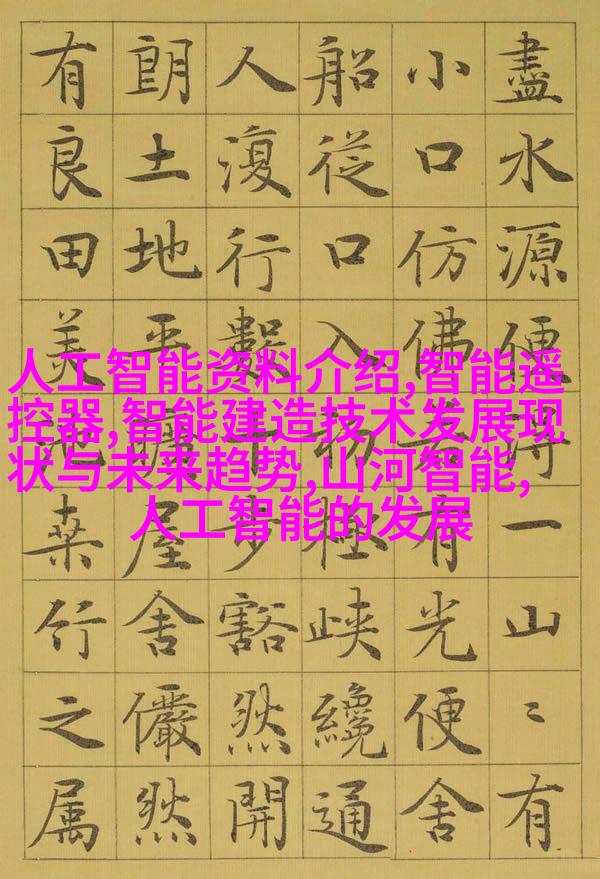 盡水源便得一山〻有
小口仿佛若有光便舍
船從口入初極峽纔通
人復行數十步豁然開
朗土地平曠屋舍儼然
有良田美池桑竹之属
人工智能资料介绍,智能遥
控器,智能建造技术发展现
状与未来趋势,山河智能,
人工智能的发展